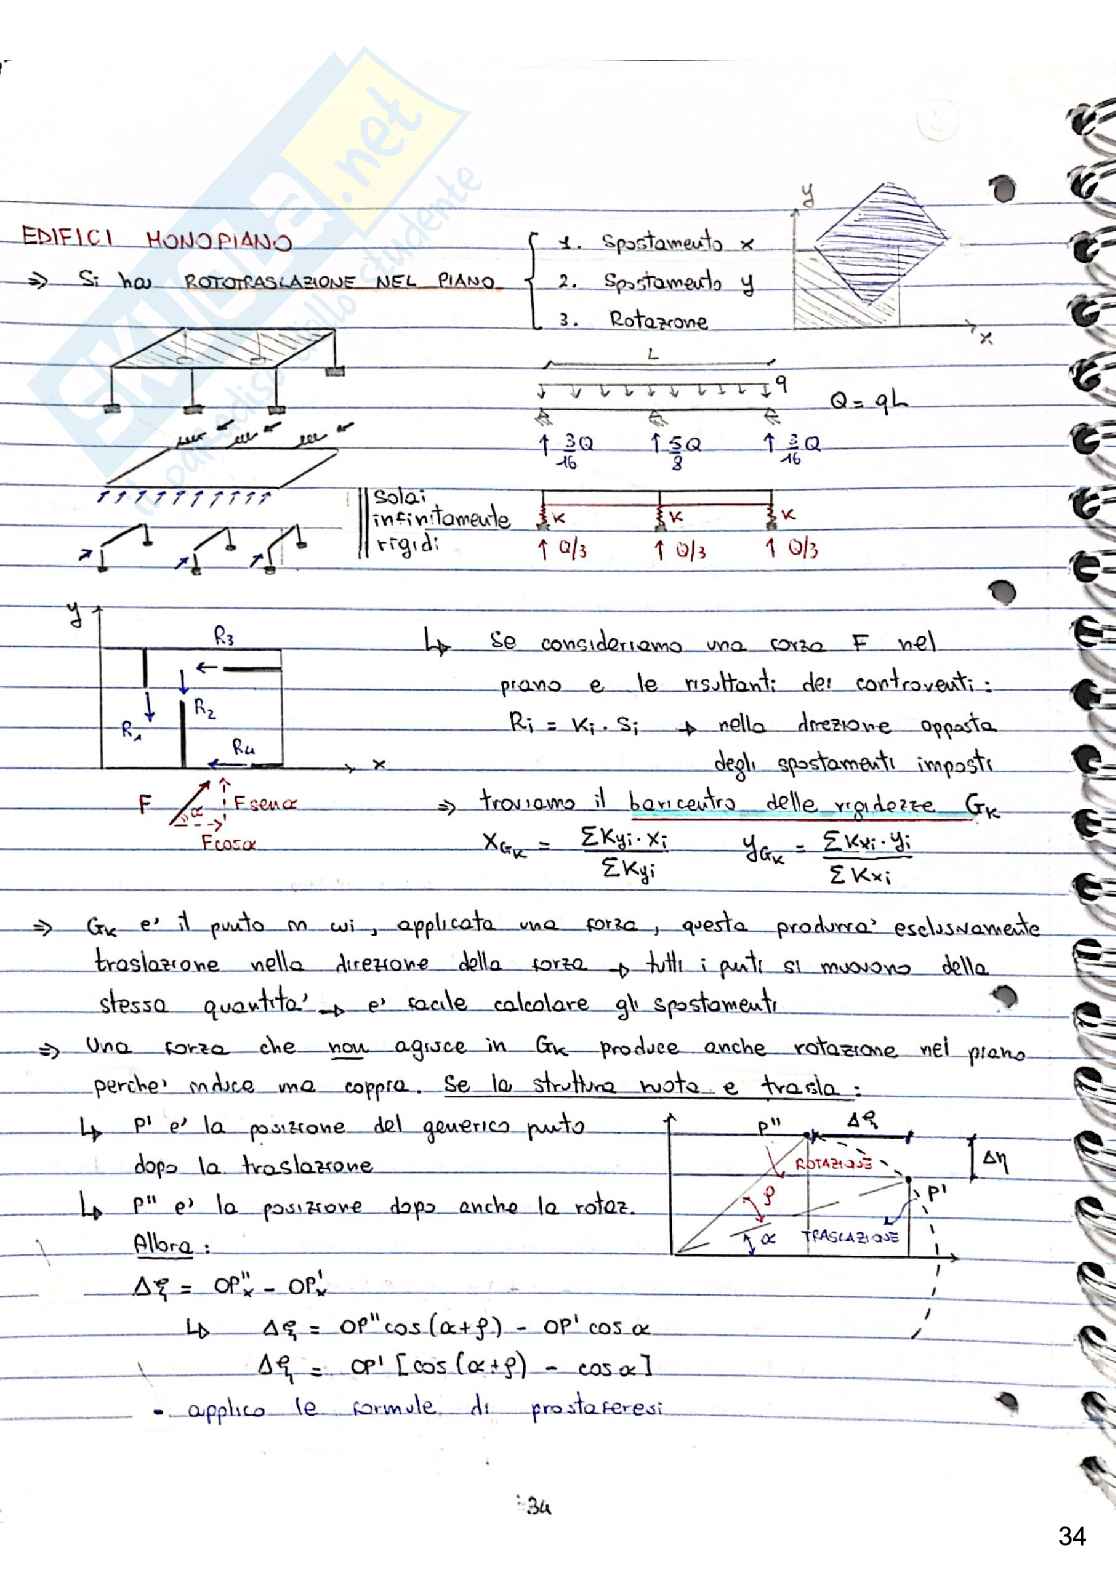 SKUOLA.net
EDIFICI MONOPIANO
⇒ Si ha ROTOTRASLAZIONE NEL PIANO
1. Spostamento x
2. Spostamento y
3. Rotazione
y
x
L
q
Q = qL
↑ 3/16 Q ↑ 5/8 Q ↑ 3/16 Q
Solai
infinitamente
rigidi
K K K
↑ Q/3 ↑ Q/3 ↑ Q/3
y
R3
R2
R1
R4
x
F
α
F senα
F cosα
↳ Se consideriamo una forza F nel
piano e le risultanti dei controventi:
Ri = Ki · Si → nella direzione opposta
degli spostamenti imposti
⇒ troviamo il baricentro delle rigidezze GK
xGK = ΣKyi · xi / ΣKyi yGK = ΣKxi · yi / ΣKxi
⇒ GK e' il punto in cui, applicata una forza, questa produrra' esclusivamente
traslazione nella direzione della forza → tutti i punti si muovono della
stessa quantita' → e' facile calcolare gli spostamenti
⇒ Una forza che non agisce in GK produce anche rotazione nel piano
perche' induce una coppia. Se la struttura ruota e trasla:
↳ P' e' la posizione del generico punto
dopo la traslazione
↳ P" e' la posizione dopo anche la rotaz.
Allora:
P" Δξ
Δη
ROTAZIONE
P'
ρ
α
TRASLAZIONE
Δξ = OP"x - OP'x
↳ Δξ = OP" cos(α+ρ) - OP' cos α
Δξ = OP' [cos(α+ρ) - cos α]
- applico le formule di prostaferesi
34
34